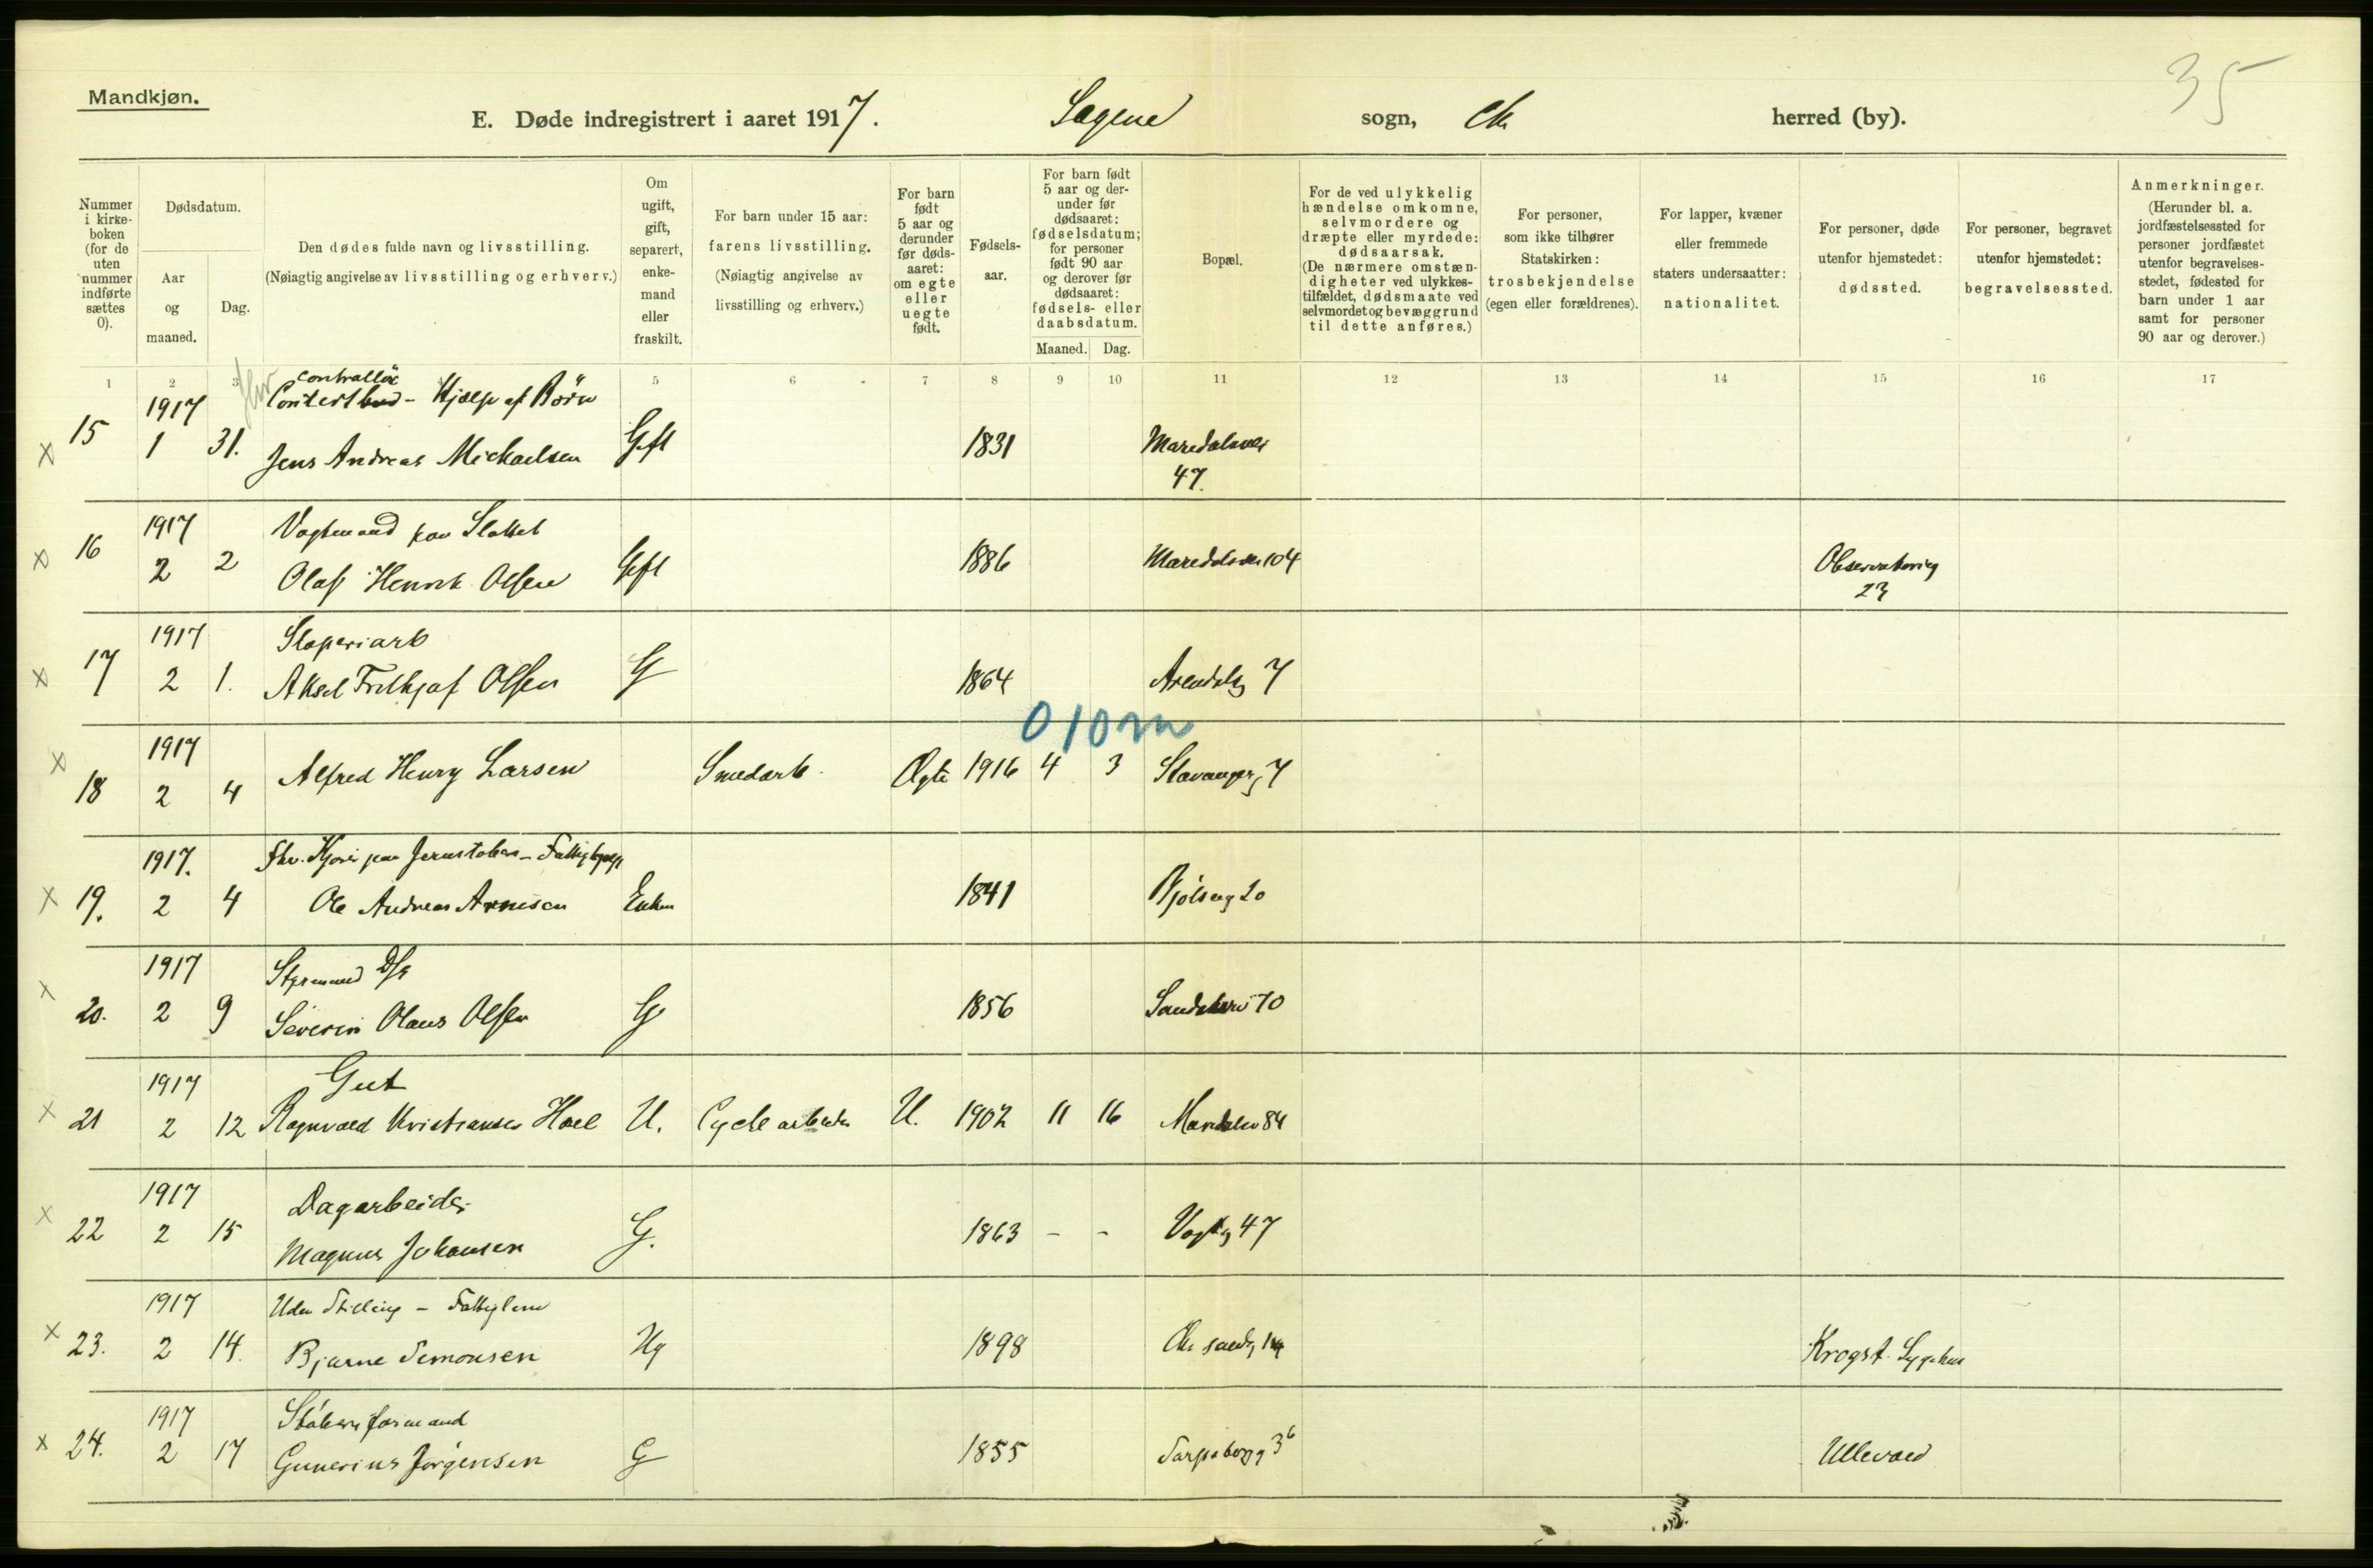 35
Mandkjøn.
E. Døde indregistrert i aaret 1917. Sagene sogn, herred (by).
Nummer i kirkeboken (for de uten nummer indførte sættes 0).
Dødsdatum.
Aar og maaned.
Dag.
Den dødes fulde navn og livsstilling.
(Nøiagtig angivelse av livsstilling og erhverv.)
Om ugift, gift, separert, enkemand eller fraskilt.
For barn under 15 aar: farens livsstilling.
(Nøiagtig angivelse av livsstilling og erhverv.)
For barn født 5 aar og derunder før dødsaaret: om egte eller uegte født.
Fødselsaar.
For barn født 5 aar og derunder før dødsaaret: fødselsdatum; for personer født 90 aar og derover før dødsaaret: fødsels- eller daabsdatum.
Maaned. Dag.
Bopæl.
For de ved ulykkelig hændelse omkomne, selvmordere og dræpte eller myrdede: dødsaarsak.
(De nærmere omstændigheter ved ulykkestilfældet, dødsmaate ved selvmordet og bevæggrund til dette anføres.)
For personer, som ikke tilhører Statskirken: trosbekjendelse (egen eller forældrenes).
For lapper, kvæner eller fremmede staters undersaatter: nationalitet.
For personer, døde utenfor hjemstedet: dødssted.
For personer, begravet utenfor hjemstedet: begravelsessted.
Anmerkninger.
(Herunder bl. a. jordfæstelsessted for personer jordfæstet utenfor begravelsesstedet, fødested for barn under 1 aar samt for personer 90 aar og derover.)
1 2 3 5 6 7 8 9 10 11 12 13 14 15 16 17
1917 Hjælp af Børn
x 15 1 31. Jens Andreas Michaelsen Gft 1831 Maredalsvei
47.
1917 Vagtmand paa Slottet
x 16 2 2 Olaf Henrik Olsen Gft 1886 Maredalsvei 104 Observatorieg
23
1917 Sloperiarb
x 17 2 1. Aksel Frithjof Olsen G 1864 Arendalsg 7
0 10 m
1917
x 18 2 4 Alfred Henry Larsen Smedarb. Ægte 1916 4 3 Stavangerg 7
1917. Fhv. paa Jernstøberi -
x 19. 2 4 Ole Andreas Arnesen Enkem 1841 Bjølseng 20
1917 Styrmand
x 20. 2 9 Severin Olaus Olsen G 1856 10
1917 Gut
x 21 2 12 Ragnvald Kristiansen Hoel U. Cyclearbeider U. 1902 11 16 84
1917 Dagarbeider
x 22 2 15 Magnus Johansen G. 1863 - - Vogtsg 47
1917 Uden Stilling - Fattiglem
x 23. 2 14. Bjarne Simonsen Ug 1898 Krogst. Sygehus
1917 Støberiformand
x 24. 2 17 Gunerius Jørgensen G 1855 Sarpsborgg 36 Ullevaal